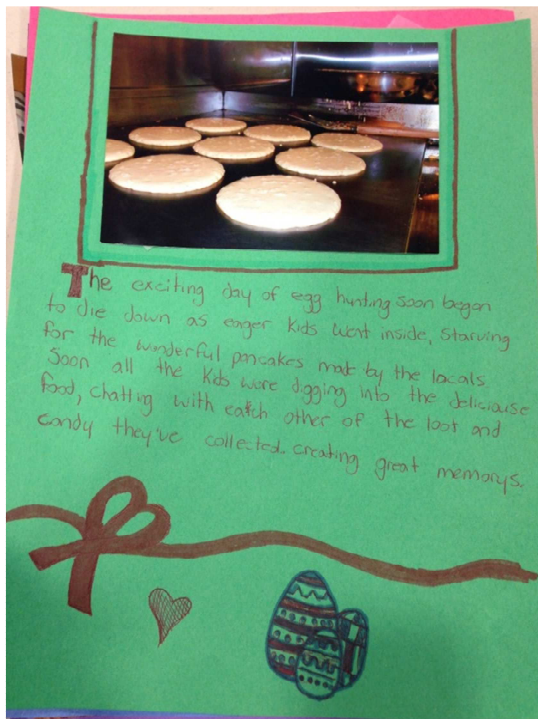 The exciting day of egg hunting soon began
to die down as eager kids went inside, starving
for the wonderful pancakes made by the locals.
Soon all the kids were digging into the deliciouse
food, chatting with each other of the loot and
candy they've collected. creating great memorys.